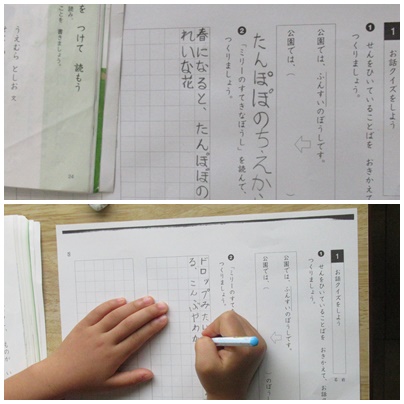 1 お話クイズをしよう
❶ せんをひいていることばを おきかえて
つくりましょう。
公園では、ふんすいのぼうしです。
公園では、(　　)
❷ 「ミリーのすてきなぼうし」を読んで、
つくりましょう。
たんぽぽのちえか、
春になると、たんぽぽの
れいな花
を つけて 読もう
読み、
ことを 書きましょう。
うえむら としお 文
1 お話クイズをしよう
❶ せんをひいていることばを おきかえて、お話
つくりましょう。
公園では、ふんすいのぼうしです。
公園では、(
のぼうしです。
❷ 「ミリーのすて
つくりましょう。
ドロップみたい
る、こんぶやわか